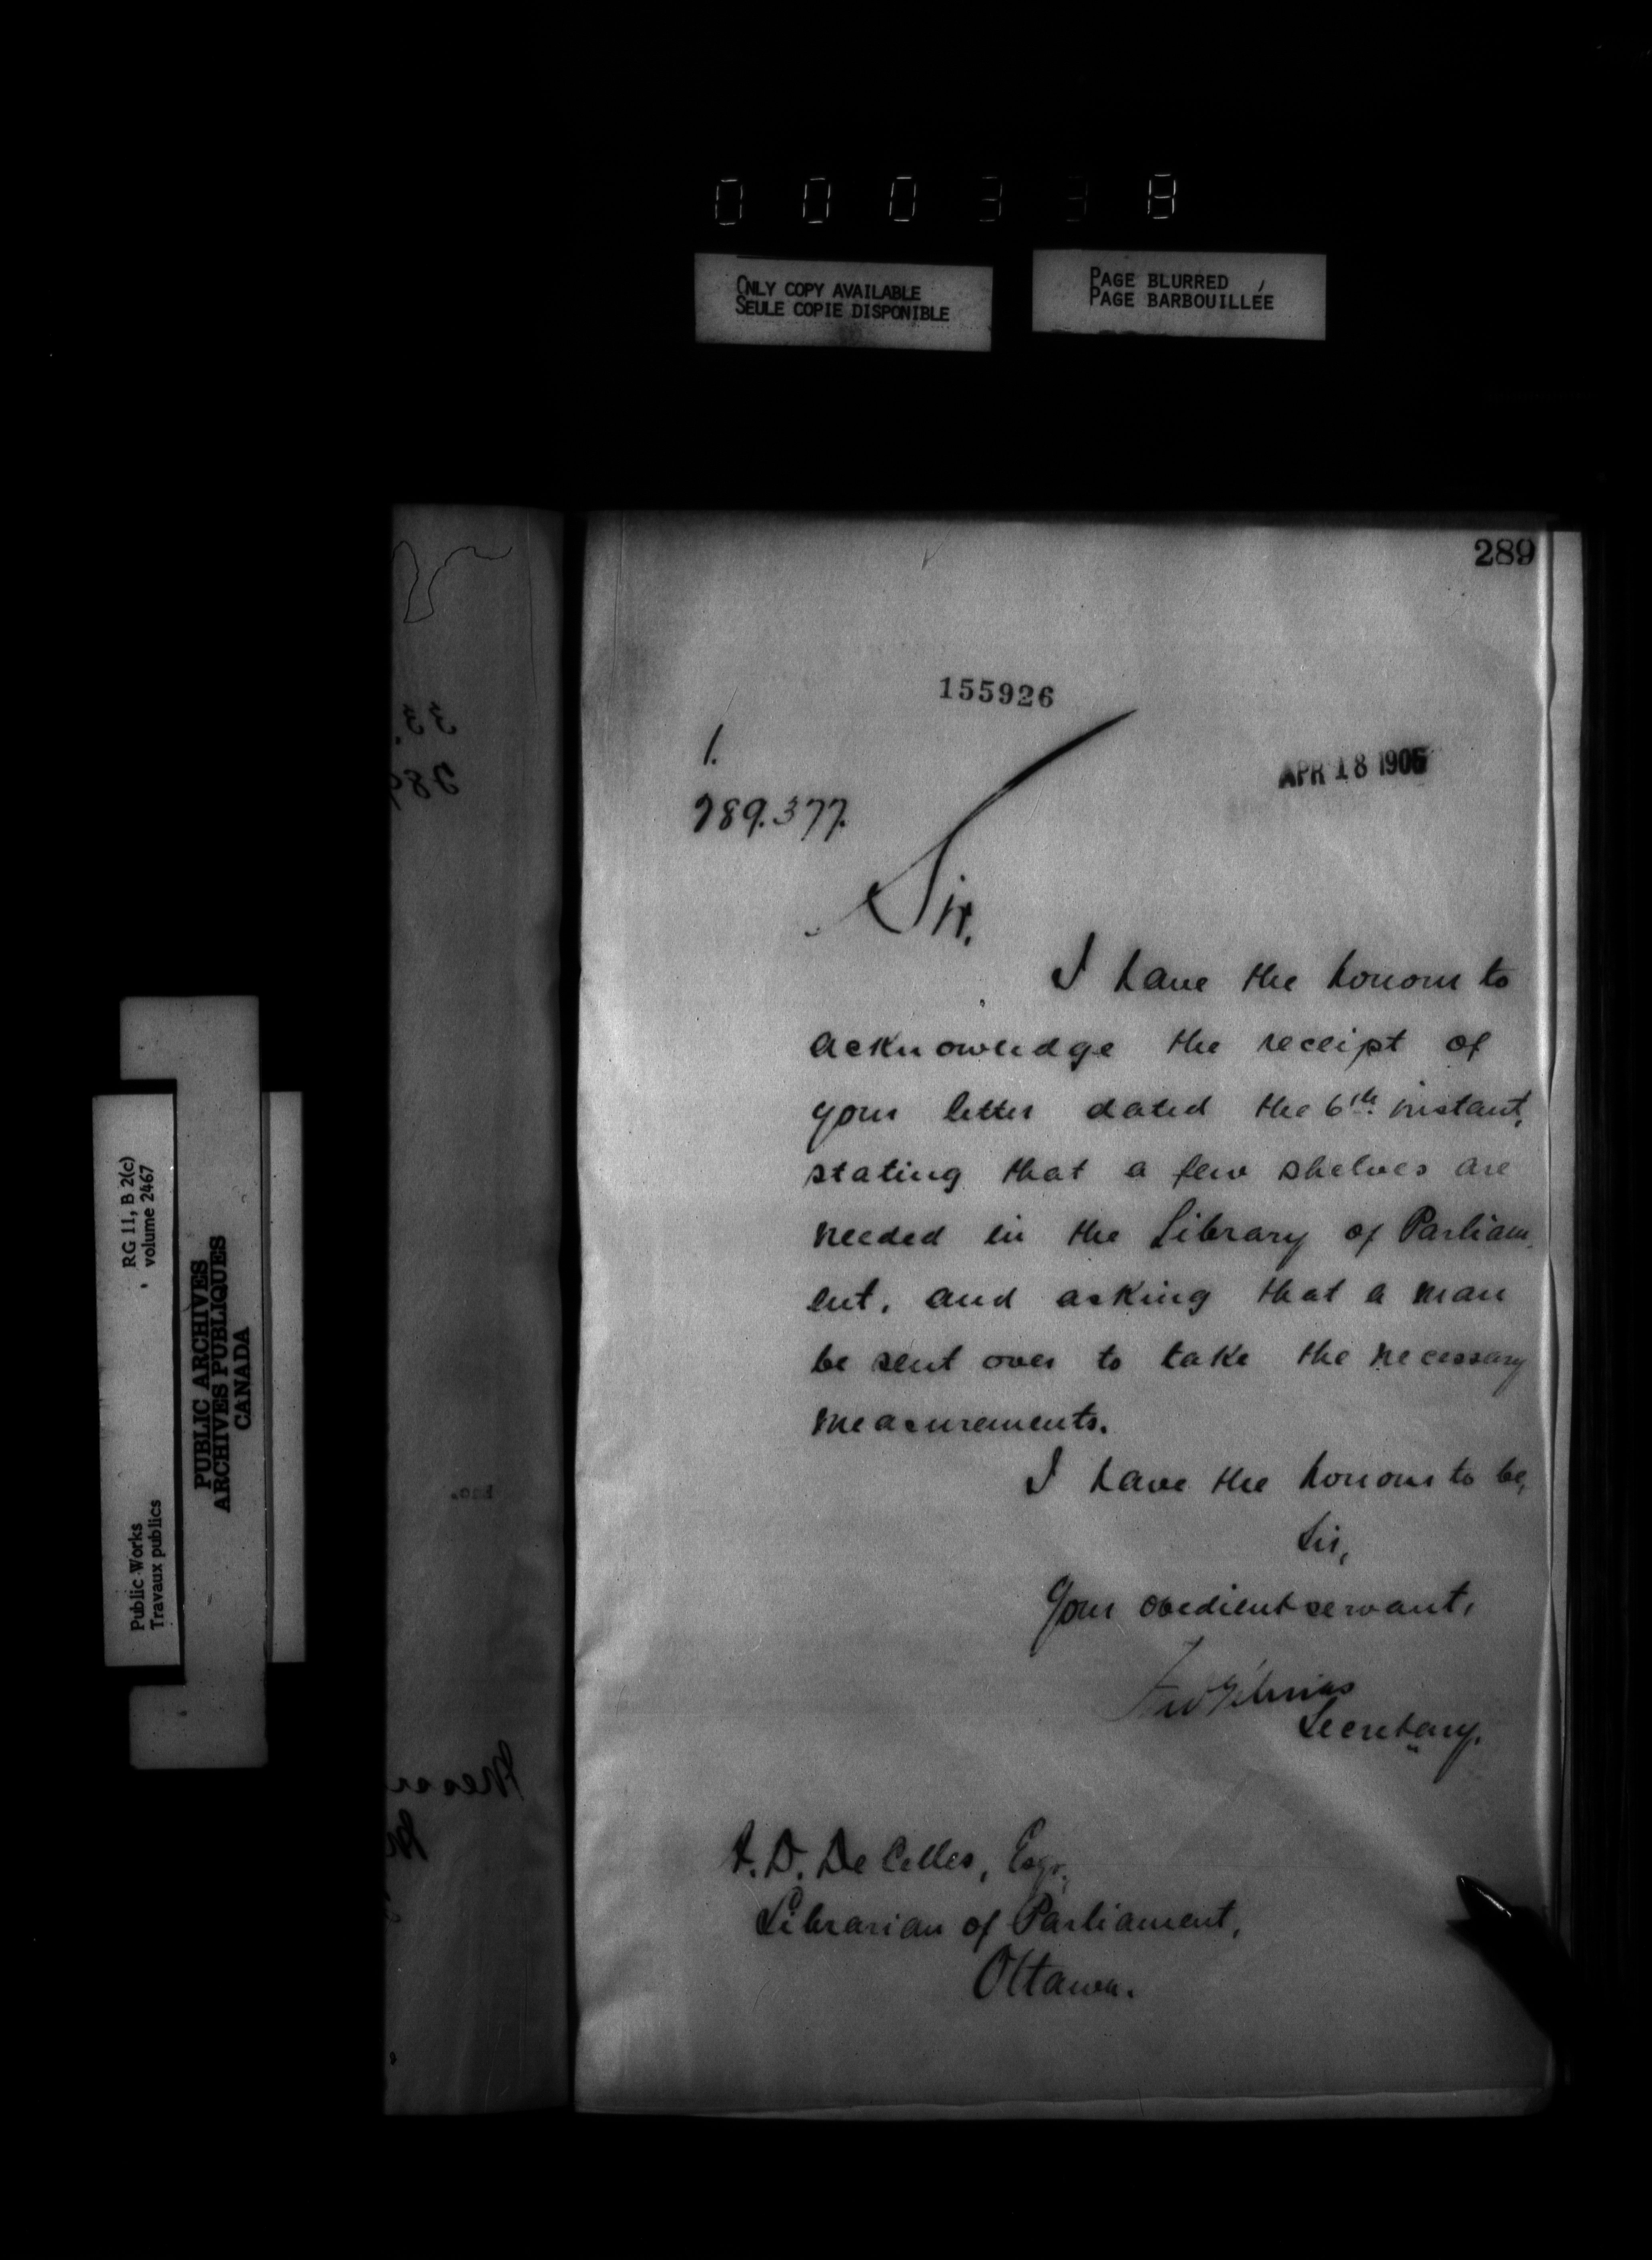 000338
ONLY COPY AVAILABLE
SEULE COPIE DISPONIBLE
PAGE BLURRED
PAGE BARBOUILLÉE
RG 11, B 2(c)
volume 2467
PUBLIC ARCHIVES
ARCHIVES PUBLIQUES
CANADA
Public Works
Travaux publics
289
155926
1.
289.377.
APR 18 1906
Sir,
I have the honour to
acknowledge the receipt of
your letter dated the 6th instant,
stating that a few shelves are
needed in the Library of Parliam-
ent, and asking that a man
be sent over to take the necessary
measurements.
I have the honour to be,
Sir,
Your obedient servant,
Secretary.
A. D. De Celles, Esqr.,
Librarian of Parliament,
Ottawa.